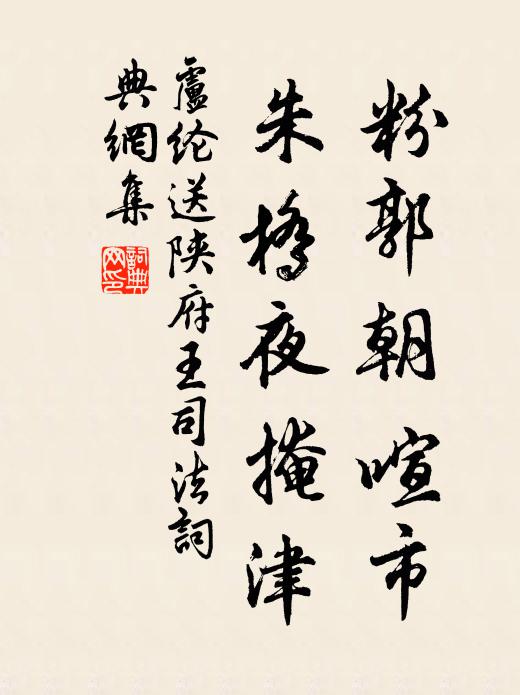 粉郭朝喧市
朱桥夜掩津
盧纶送陕府王司法詞
典網集
詞典
网印